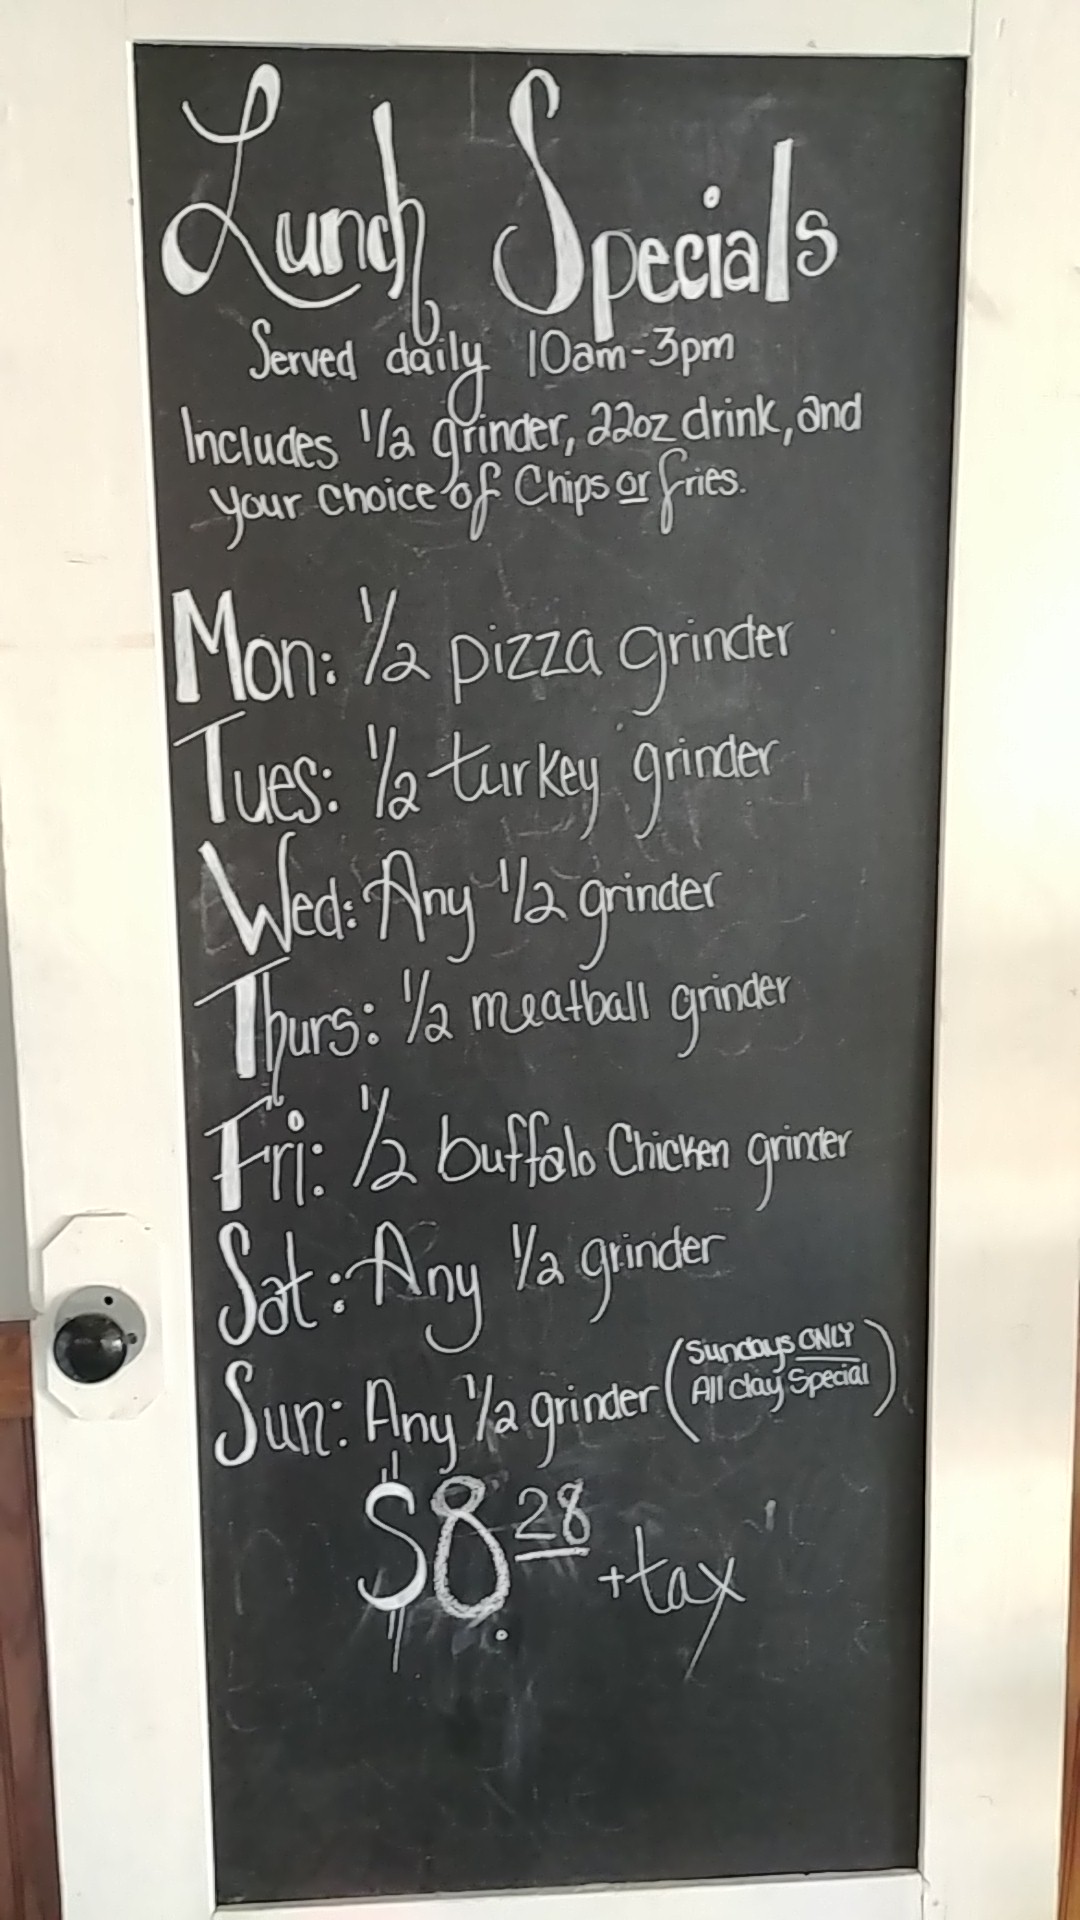 Lunch Specials
Served daily 10am-3pm
Includes 1/2 grinder, 22oz drink, and
your choice of Chips or fries.
Mon: 1/2 pizza grinder
Tues: 1/2 turkey grinder
Wed: Any 1/2 grinder
Thurs: 1/2 meatball grinder
Fri: 1/2 buffalo Chicken grinder
Sat: Any 1/2 grinder
Sun: Any 1/2 grinder (Sundays ONLY
All day Special)
$8.28 +tax